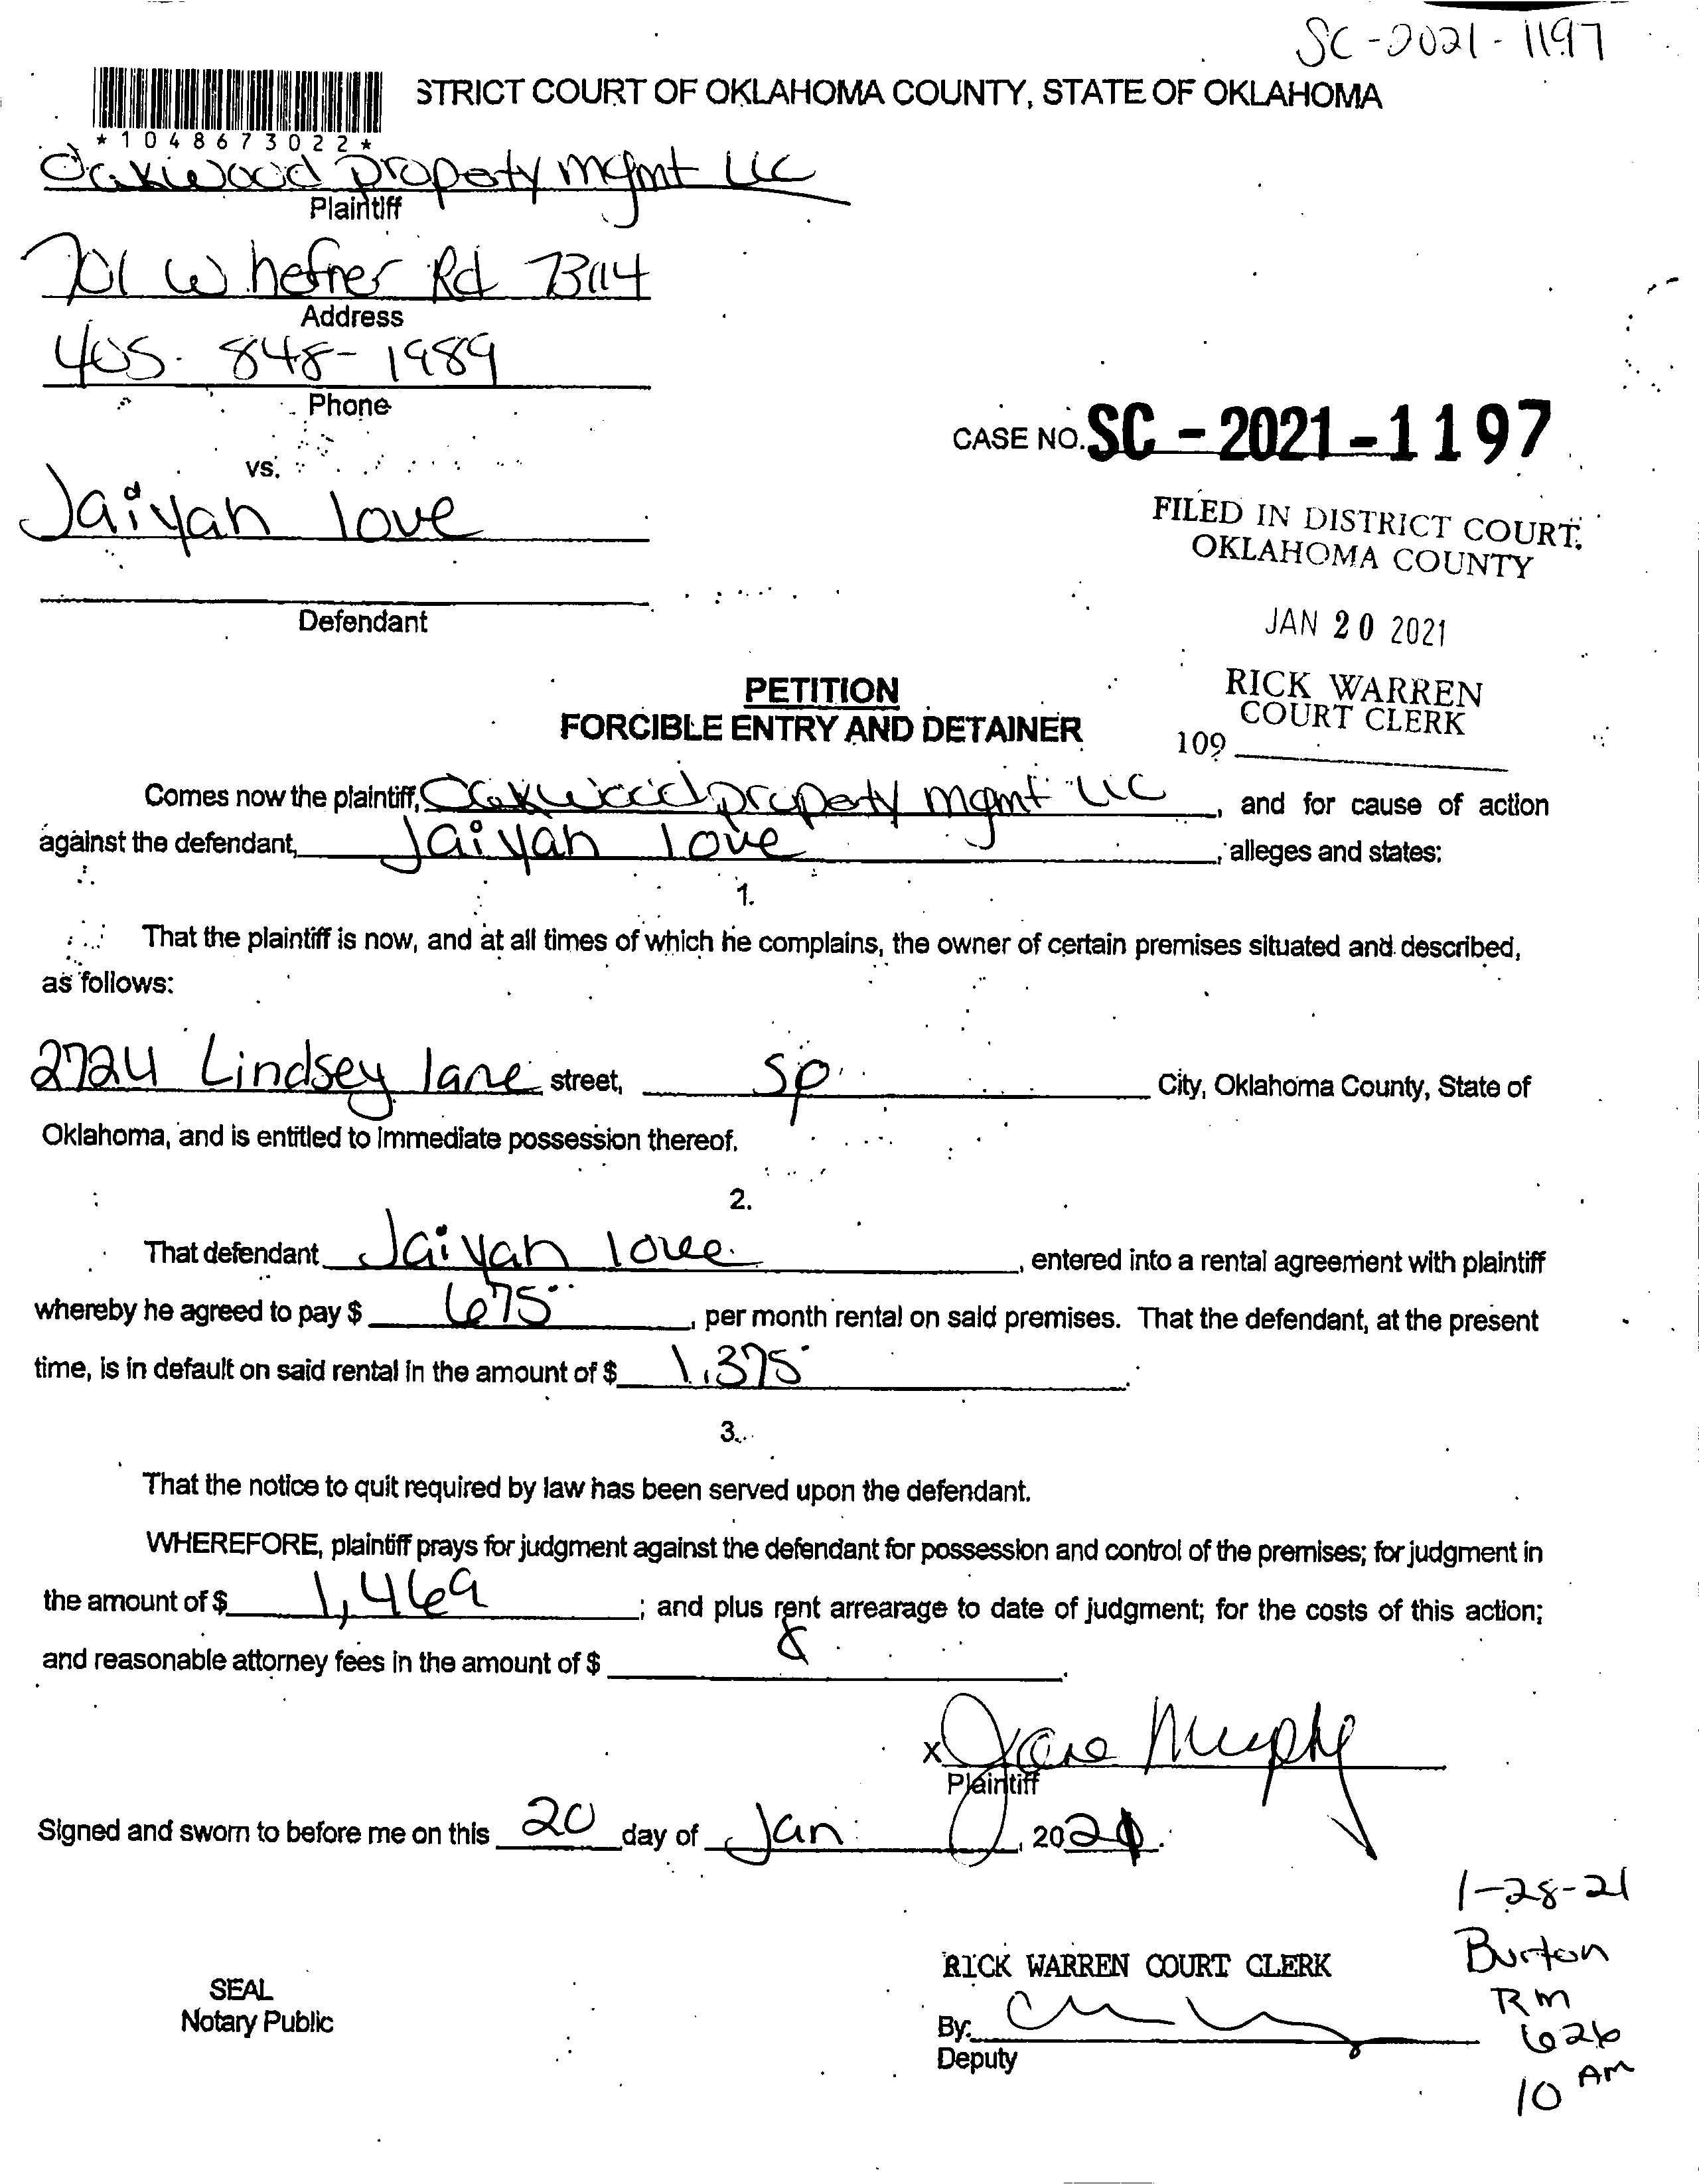 SC-2021-1197
STRICT COURT OF OKLAHOMA COUNTY, STATE OF OKLAHOMA
*1048673022*
Oakwood property mgmt LLC
Plaintiff
701 W hefner Rd 73114
Address
405-848-1989
Phone
CASE NO. SC-2021-1197
vs.
Jaiyah love
FILED IN DISTRICT COURT
OKLAHOMA COUNTY
Defendant
JAN 20 2021
RICK WARREN
COURT CLERK
109
PETITION
FORCIBLE ENTRY AND DETAINER
Comes now the plaintiff, Oakwood property mgmt LLC, and for cause of action
against the defendant, Jaiyah love, alleges and states:
1.
That the plaintiff is now, and at all times of which he complains, the owner of certain premises situated and described,
as follows:
2724 Lindsey lane street, sp City, Oklahoma County, State of
Oklahoma, and is entitled to immediate possession thereof.
2.
That defendant Jaiyah love, entered into a rental agreement with plaintiff
whereby he agreed to pay $ 675, per month rental on said premises. That the defendant, at the present
time, is in default on said rental in the amount of $ 1,375.
3.
That the notice to quit required by law has been served upon the defendant.
WHEREFORE, plaintiff prays for judgment against the defendant for possession and control of the premises; for judgment in
the amount of $ 1,469; and plus rent arrearage to date of judgment; for the costs of this action;
and reasonable attorney fees in the amount of $
x Jane Murphy
Plaintiff
Signed and sworn to before me on this 20 day of Jan, 2021.
1-28-21
Burton
RM
626
10 AM
RICK WARREN COURT CLERK
SEAL
Notary Public
By:
Deputy